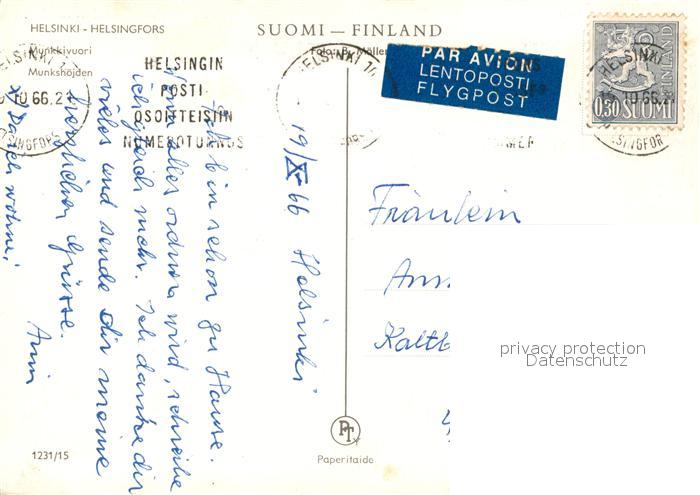 HELSINKI - HELSINGFORS
SUOMI — FINLAND
Munkkivuori
Munkshöjden
Foto: B. Möller
HELSINKI
10.66.21
HELSINGFORS
HELSINGIN
POSTI-
OSOITTEISIIN
NUMEROTUNNUS
HELSINKI
PAR AVION
LENTOPOSTI
FLYGPOST
SUOMI
FINLAND
0,30 SUOMI
HELSINKI
10.66.21
HELSINGFOR
19/X 66 Helsinki
Ich bin schon zu Hause.
Wenn alles ordnung wird, schreibe
ich gleich mehr. Ich danke dir
vieles und sende Dir meine
herzlichen Grüsse.
Anni
x Danch wohne!
Fräulein
Ann
Kaltb
privacy protection
Datenschutz
PT
Paperitaide
1231/15